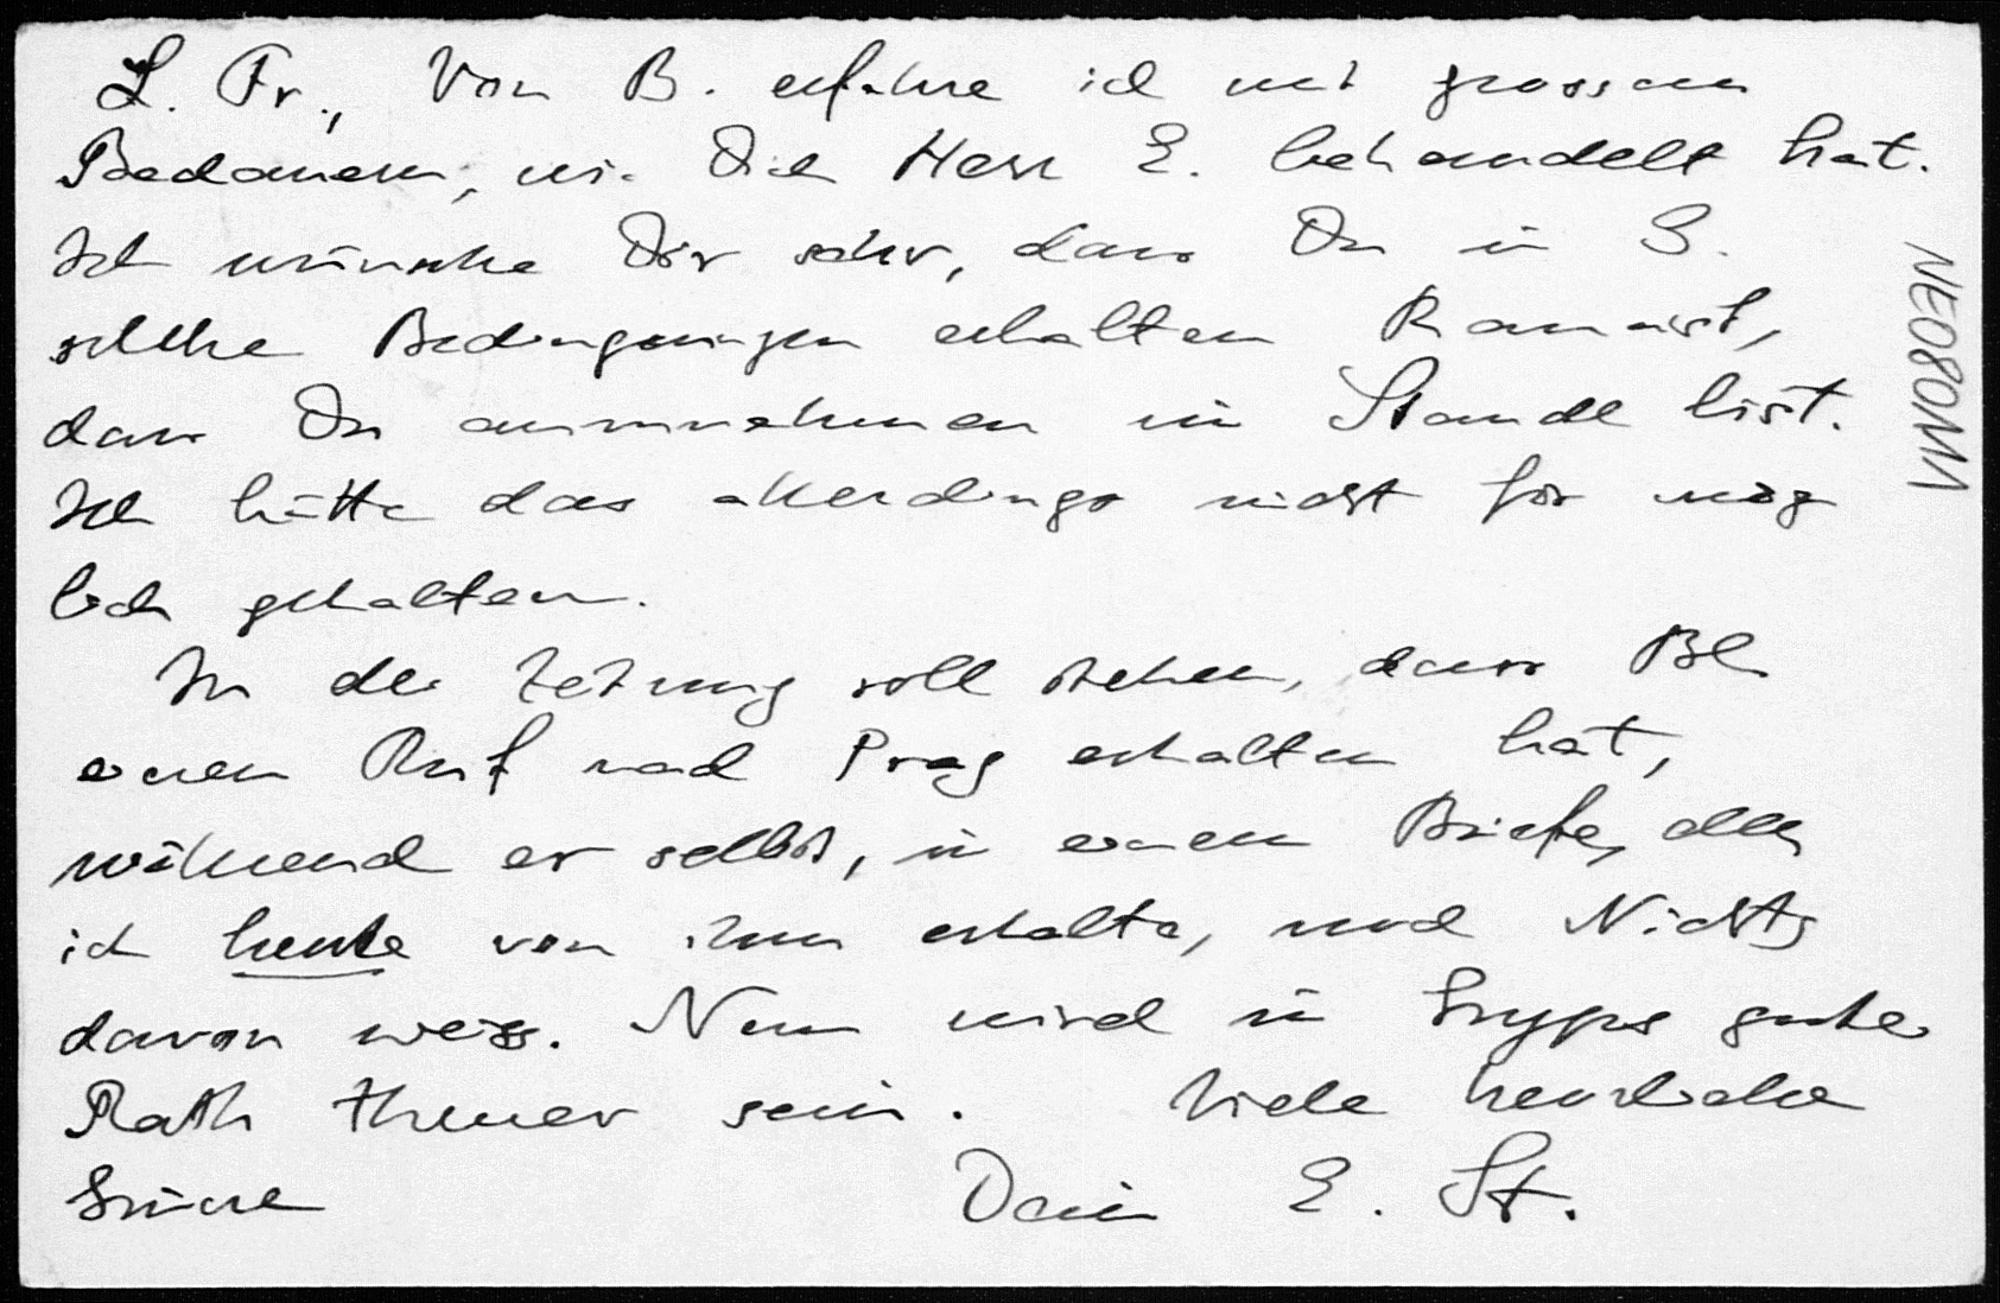 L. Fr., Von B. erfahre ich mit grossem
Bedauern, wie Dich Herr E. behandelt hat.
Ich wünsche Dir sehr, dass Du in S.
solche Bedingungen erhalten kannst,
dass Du anzunehmen im Stande bist.
Ich hätte das allerdings nicht für mög
lich gehalten.
In der Zeitung soll stehen, dass
einen Ruf nach Prag erhalten hat,
während er selbst, in einem Briefe, den
ich heute von ihm erhalte, noch Nichts
davon weiss. Nun wird in guter
Rath theuer sein. Viele herzliche
Grüsse Dein E. St.
NE080M1